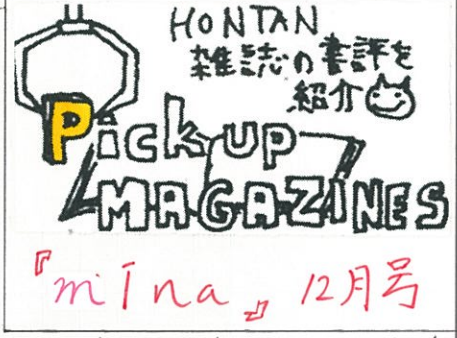 HONTAN
雑誌の書評を
紹介
Pick up
MAGAZINES
『mina』12月号